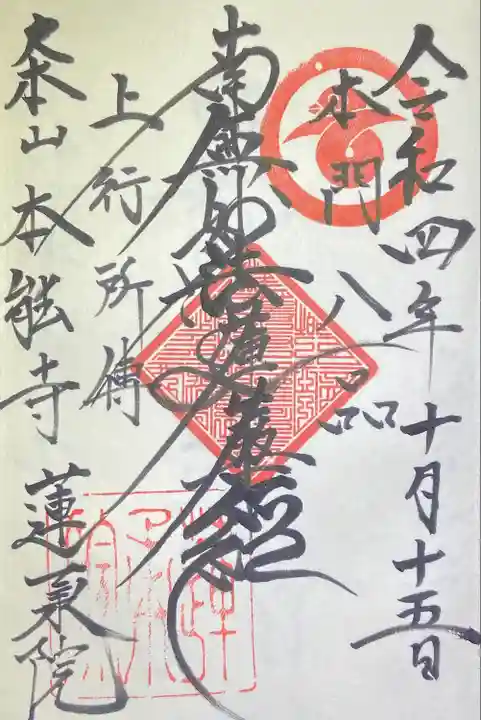 令和四年十月十五日
本門八品
南無妙法蓮華経
上行所傳
大本山本能寺 蓮承院